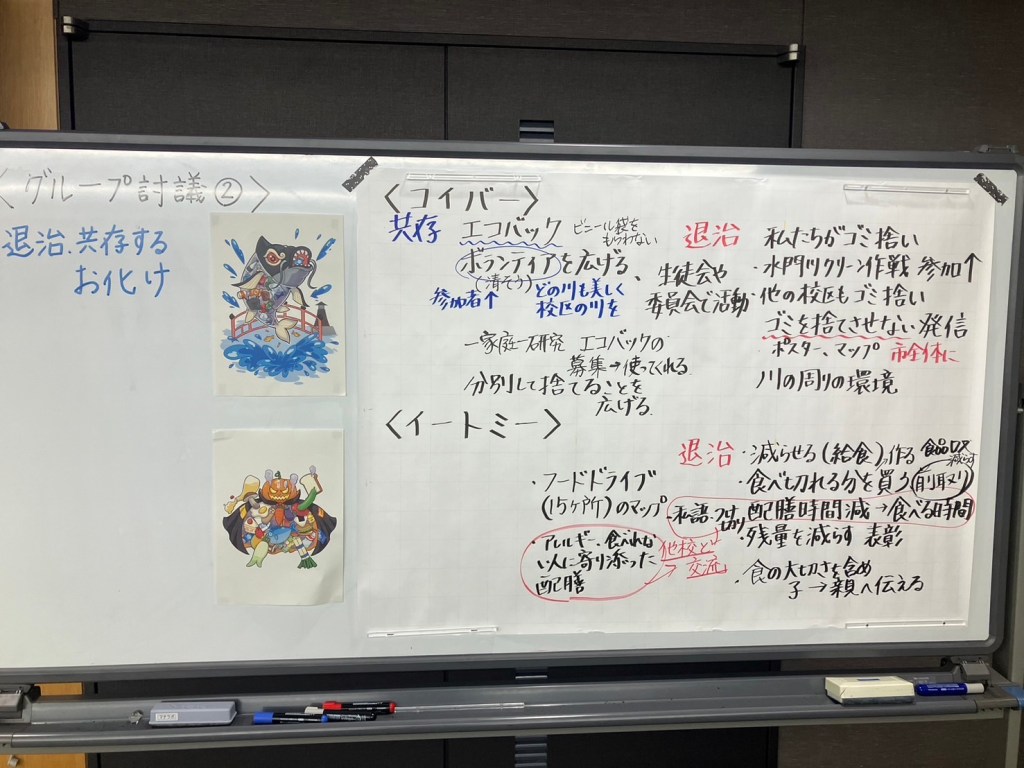 〈グループ討議②〉
退治、共存する
お化け
〈コイバー〉
共存 エコバック ビニール袋を
もらわない
ボランティアを広げる、
(清そう)
参加者↑ どの川も美しく
校区の川を
生徒会や
委員会で活動
一家庭一研究 エコバックの
募集→使ってくれる
分別して捨てることを
広げる
退治 私たちがゴミ拾い
・水門川クリーン作戦 参加↑
・他の校区もゴミ拾い
ゴミを捨てさせない発信
ポスター、マップ 市全体に
川の周りの環境
〈イートミー〉
・フードドライブ
(15ヶ所)のマップ
アレルギー、食べれな
い人に寄り添った
配膳
他校と
交流
退治 ・減らせる(給食)作る 食品ロス
減らす
・食べ切れる分を買う(削取り)
私語 配膳時間減→食べる時間
・残量を減らす 表彰
・食の大切さを含め
子→親へ伝える